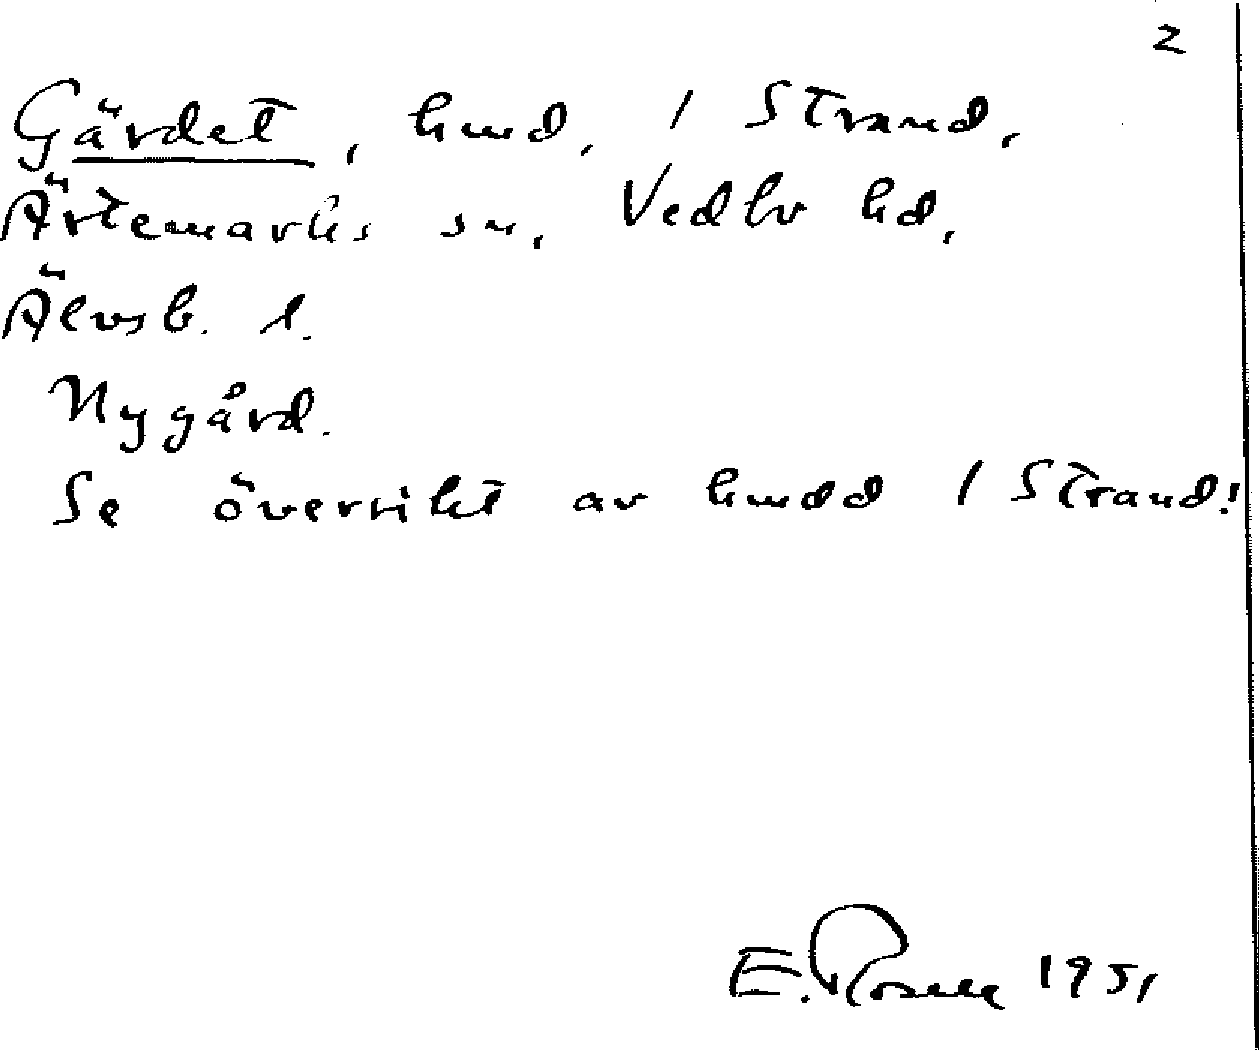 2
Gärdet, hmd, 1 Strand,
Ärtemarks sn, Vedbo hd,
Älvsb. l.
Nygård.
Se översikt av hmdd 1 Strand!
E. Rosell 1951